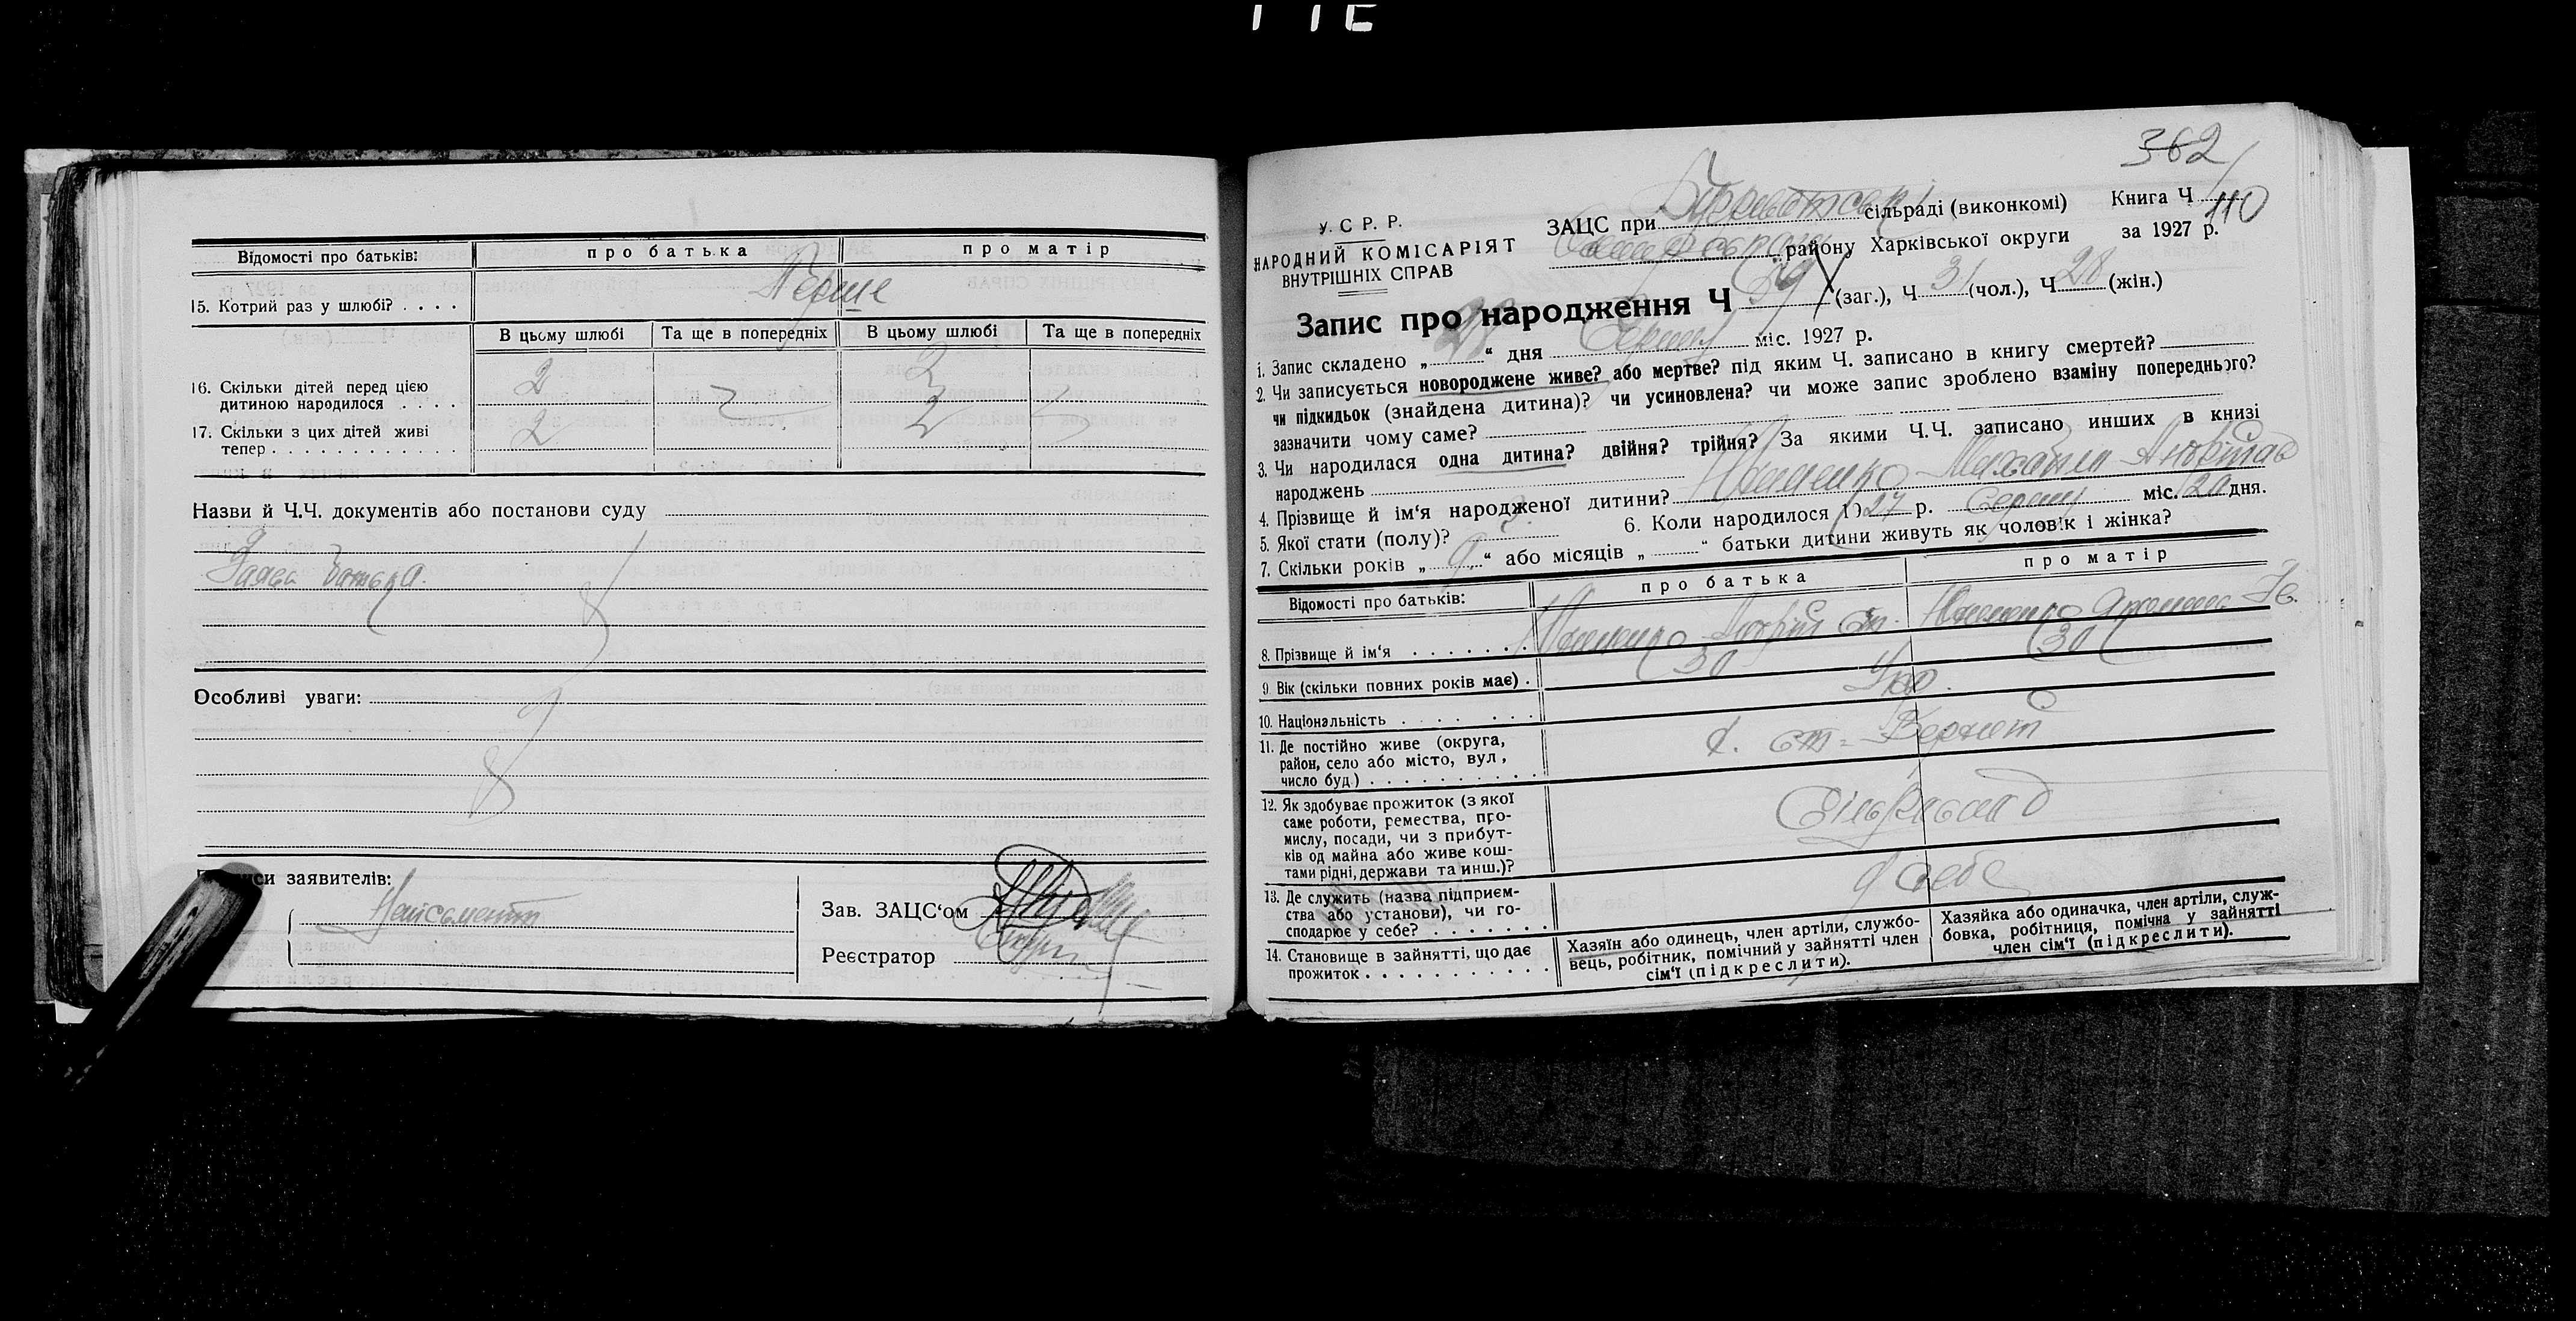 Відомості про батьків: про батька про матір
15. Котрий раз у шлюбі? . . . . Перше
В цьому шлюбі Та ще в попередніх В цьому шлюбі Та ще в попередніх
16. Скільки дітей перед цією
дитиною народилося . . . . 2 2
17. Скільки з цих дітей живі
тепер . . . . . . . . . . . . 2 2
Назви й Ч.Ч. документів або постанови суду
Заява батька.
Особливі уваги:
иси заявителів:
Неписьмент
Зав. ЗАЦС‘ом
Реєстратор
362
110
У. С. Р. Р.
НАРОДНИЙ КОМІСАРІЯТ
ВНУТРІШНІХ СПРАВ
ЗАЦС при сільраді (виконкомі) Книга Ч
району Харківської округи за 1927 р.
Запис про народження Ч 59 (заг.), Ч 31 (чол.), Ч 28 (жін.)
1. Запис складено „ 28 “ дня Серпня міс. 1927 р.
2. Чи записується новороджене живе? або мертве? під яким Ч. записано в книгу смертей?
чи підкидьок (знайдена дитина)? чи усиновлена? чи може запис зроблено взаміну попереднього?
зазначити чому саме?
3. Чи народилася одна дитина? двійня? трійня? За якими Ч.Ч. записано инших в книзі
народжень
4. Прізвище й ім‘я народженої дитини? Михайло Андрійов
5. Якої стати (полу)? 6. Коли народилося 1927 р. Серпня міс. 20 дня.
7. Скільки років „ 9 “ або місяців „ “ батьки дитини живуть як чоловік і жінка?
Відомості про батьків: про батька про матір
8. Прізвище й ім‘я . . . . . . . Андрій
9. Вік (скільки повних років має) . 30 30
10. Національність . . . . . . . Укр.
11. Де постійно живе (округа,
район, село або місто, вул,
число буд.) . . . . . . . . . .
12. Як здобуває прожиток (з якої
саме роботи, ремества, про-
мислу, посади, чи з прибут-
ків од майна або живе кош-
тами рідні, держави та инш.)?
13. Де служить (назва підприєм-
ства або установи), чи го-
сподарює у себе? . . . . . . . У себе
14. Становище в зайнятті, що дає
прожиток . . . . . . . . . . .
Хазяїн або одинець, член артіли, службо-
вець, робітник, помічний у зайнятті член
сім‘ї (підкреслити).
Хазяйка або одиначка, член артіли, служ-
бовка, робітниця, помічна у зайнятті
член сім‘ї (підкреслити).